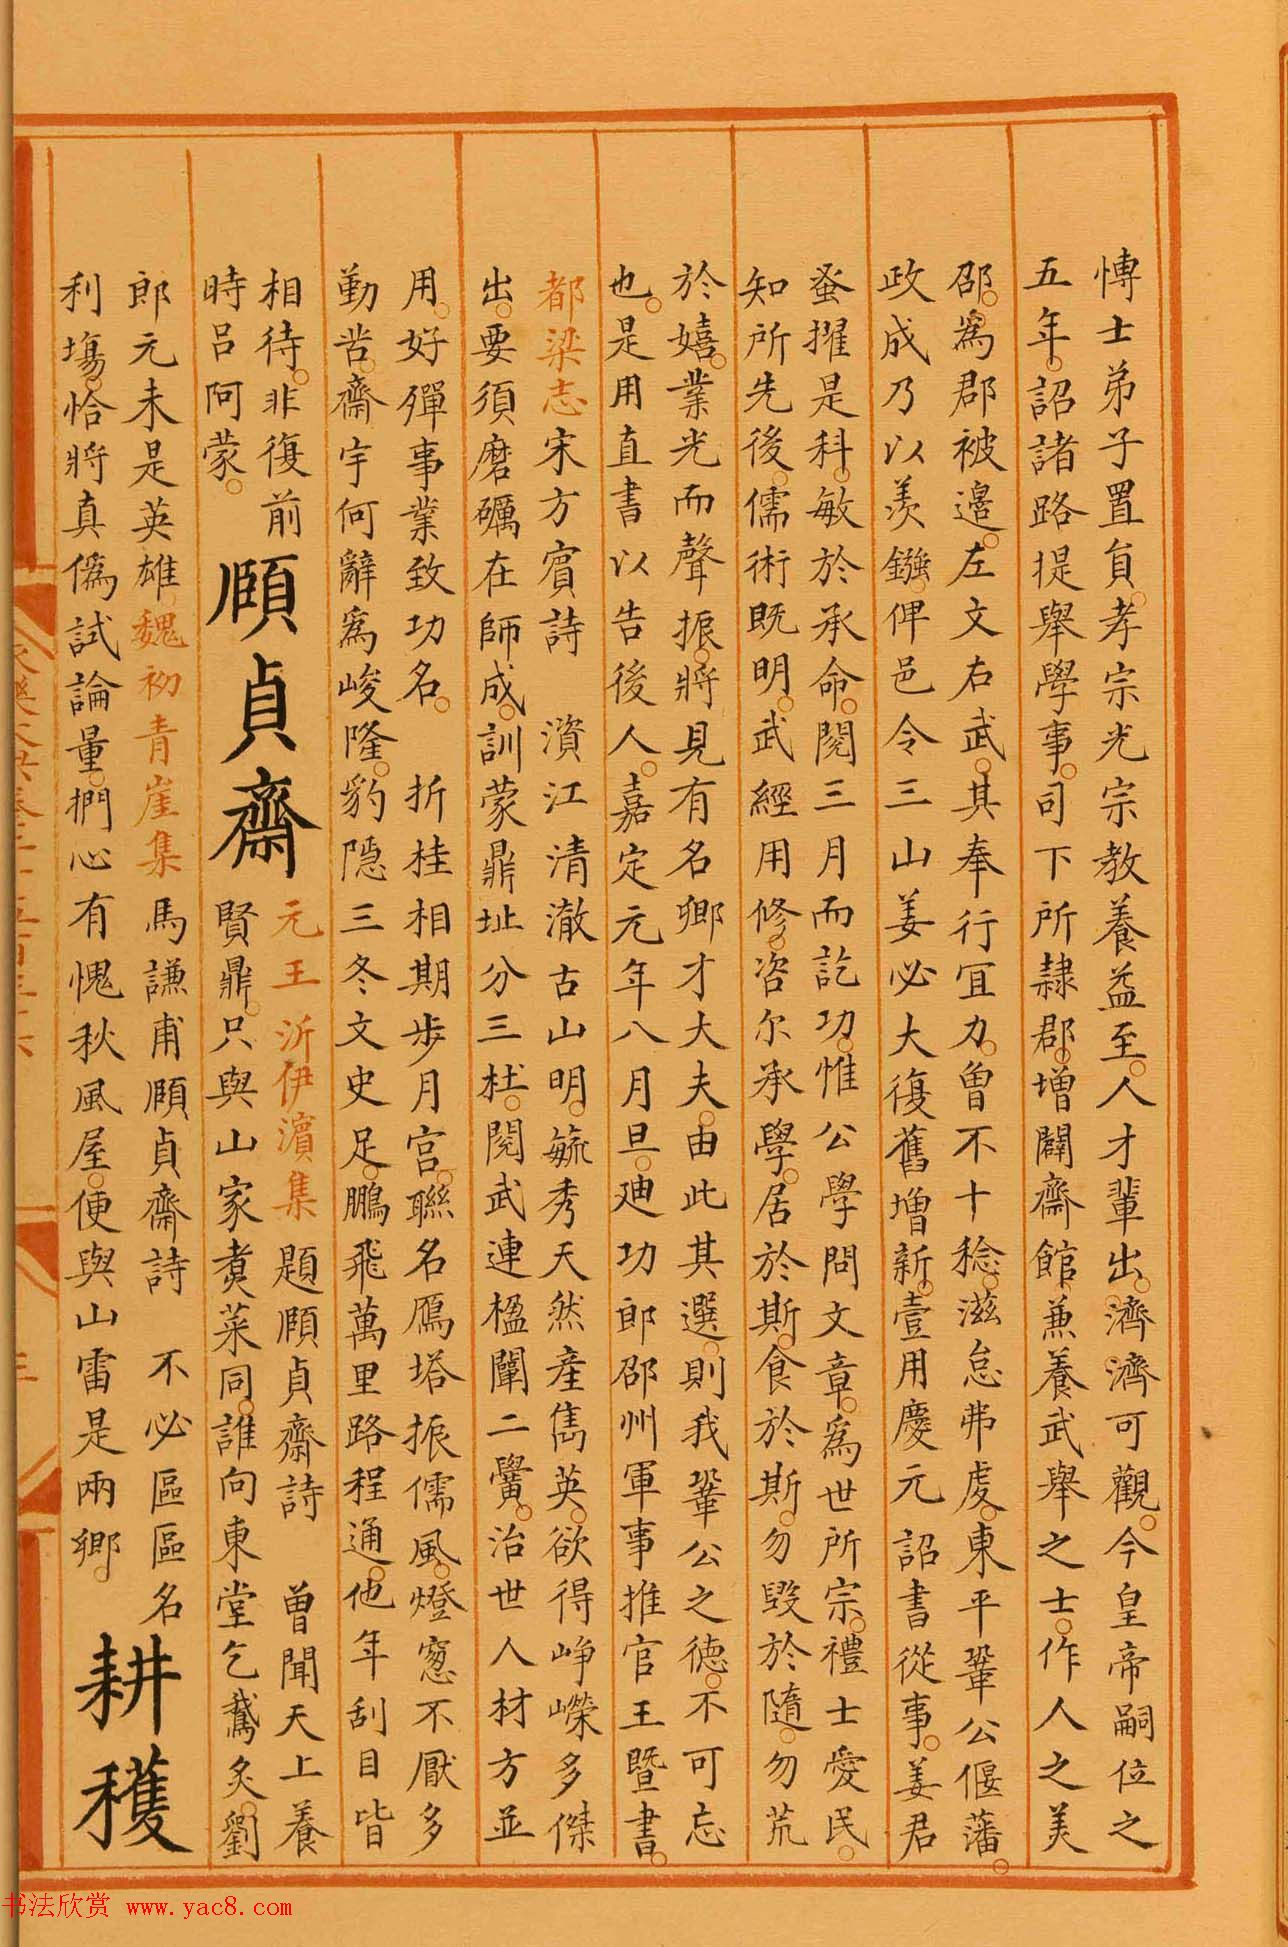 愽士弟子置貟。孝宗光宗教養益至。人才軰出。濟濟可觀。今皇帝嗣位之
五年。詔諸路提舉學事。司下所隷郡。增闢齋館兼養武舉之士。作人之美
邵。爲郡被邊。左文右武。其奉行宜力。曽不十稔。滋怠弗䖍。東平鞏公偃藩。
政成乃以羨鏹。俾邑令三山姜必大復舊增新。壹用慶元詔書從事。姜君
蚤擢是科。敏於承命。閱三月而訖功。惟公學問文章。爲世所宗。禮士愛民。
知所先後。儒術既明。武經用修。咨尔承學。居於斯。食於斯。勿毀於隨。勿荒
於嬉。業光而聲振。將見有名卿才大夫。由此其選。則我鞏公之徳。不可忘
也。是用直書以告後人。嘉定元年八月旦。廸功郎邵州軍事推官王曁書。
都梁志宋方賔詩　濱江清澈古山明。毓秀天然產雋英。欲得崢嶸多傑
出。要須磨礪在師成。訓蒙鼎址分三杜。閱武連楹闡二黌。治世人材方並
用。好殫事業致功名。　折桂相期步月宫。聮名鴈塔振儒風。燈窻不厭多
勤苦。齋宇何辭爲峻隆。豹隠三冬文史足。鵬飛萬里路程通。他年刮目皆
相待。非復前
時吕阿蒙。
頥貞齋
元王沂伊濵集題頥貞齋詩　曽聞天上養
賢鼎。只與山家煑菜同。誰向東堂乞鵞炙。劉
郎元未是英雄。魏初青崖集馬謙甫頥貞齋詩　不必區區名
利塲。恰將真僞試論量。捫心有愧秋風屋。便與山雷是兩鄉。
耕穫
书法欣赏 www.yac8.com